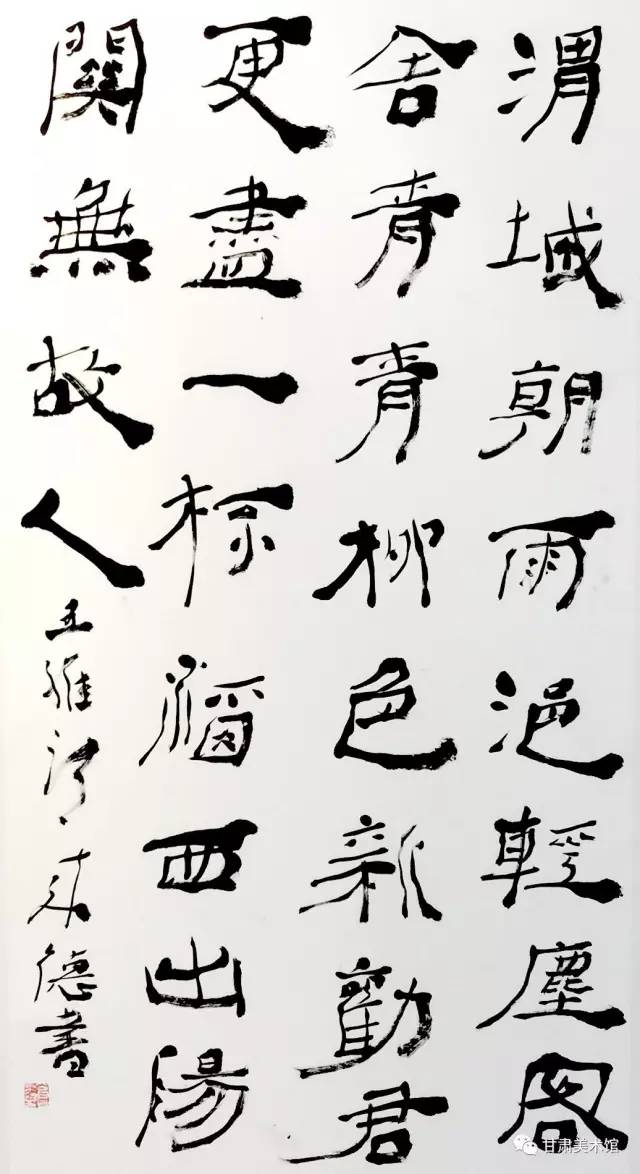 渭城朝雨浥輕塵客
舍青青柳色新勸君
更盡一杯酒西出陽
關無故人
王維詩 来德書
甘肃美术馆